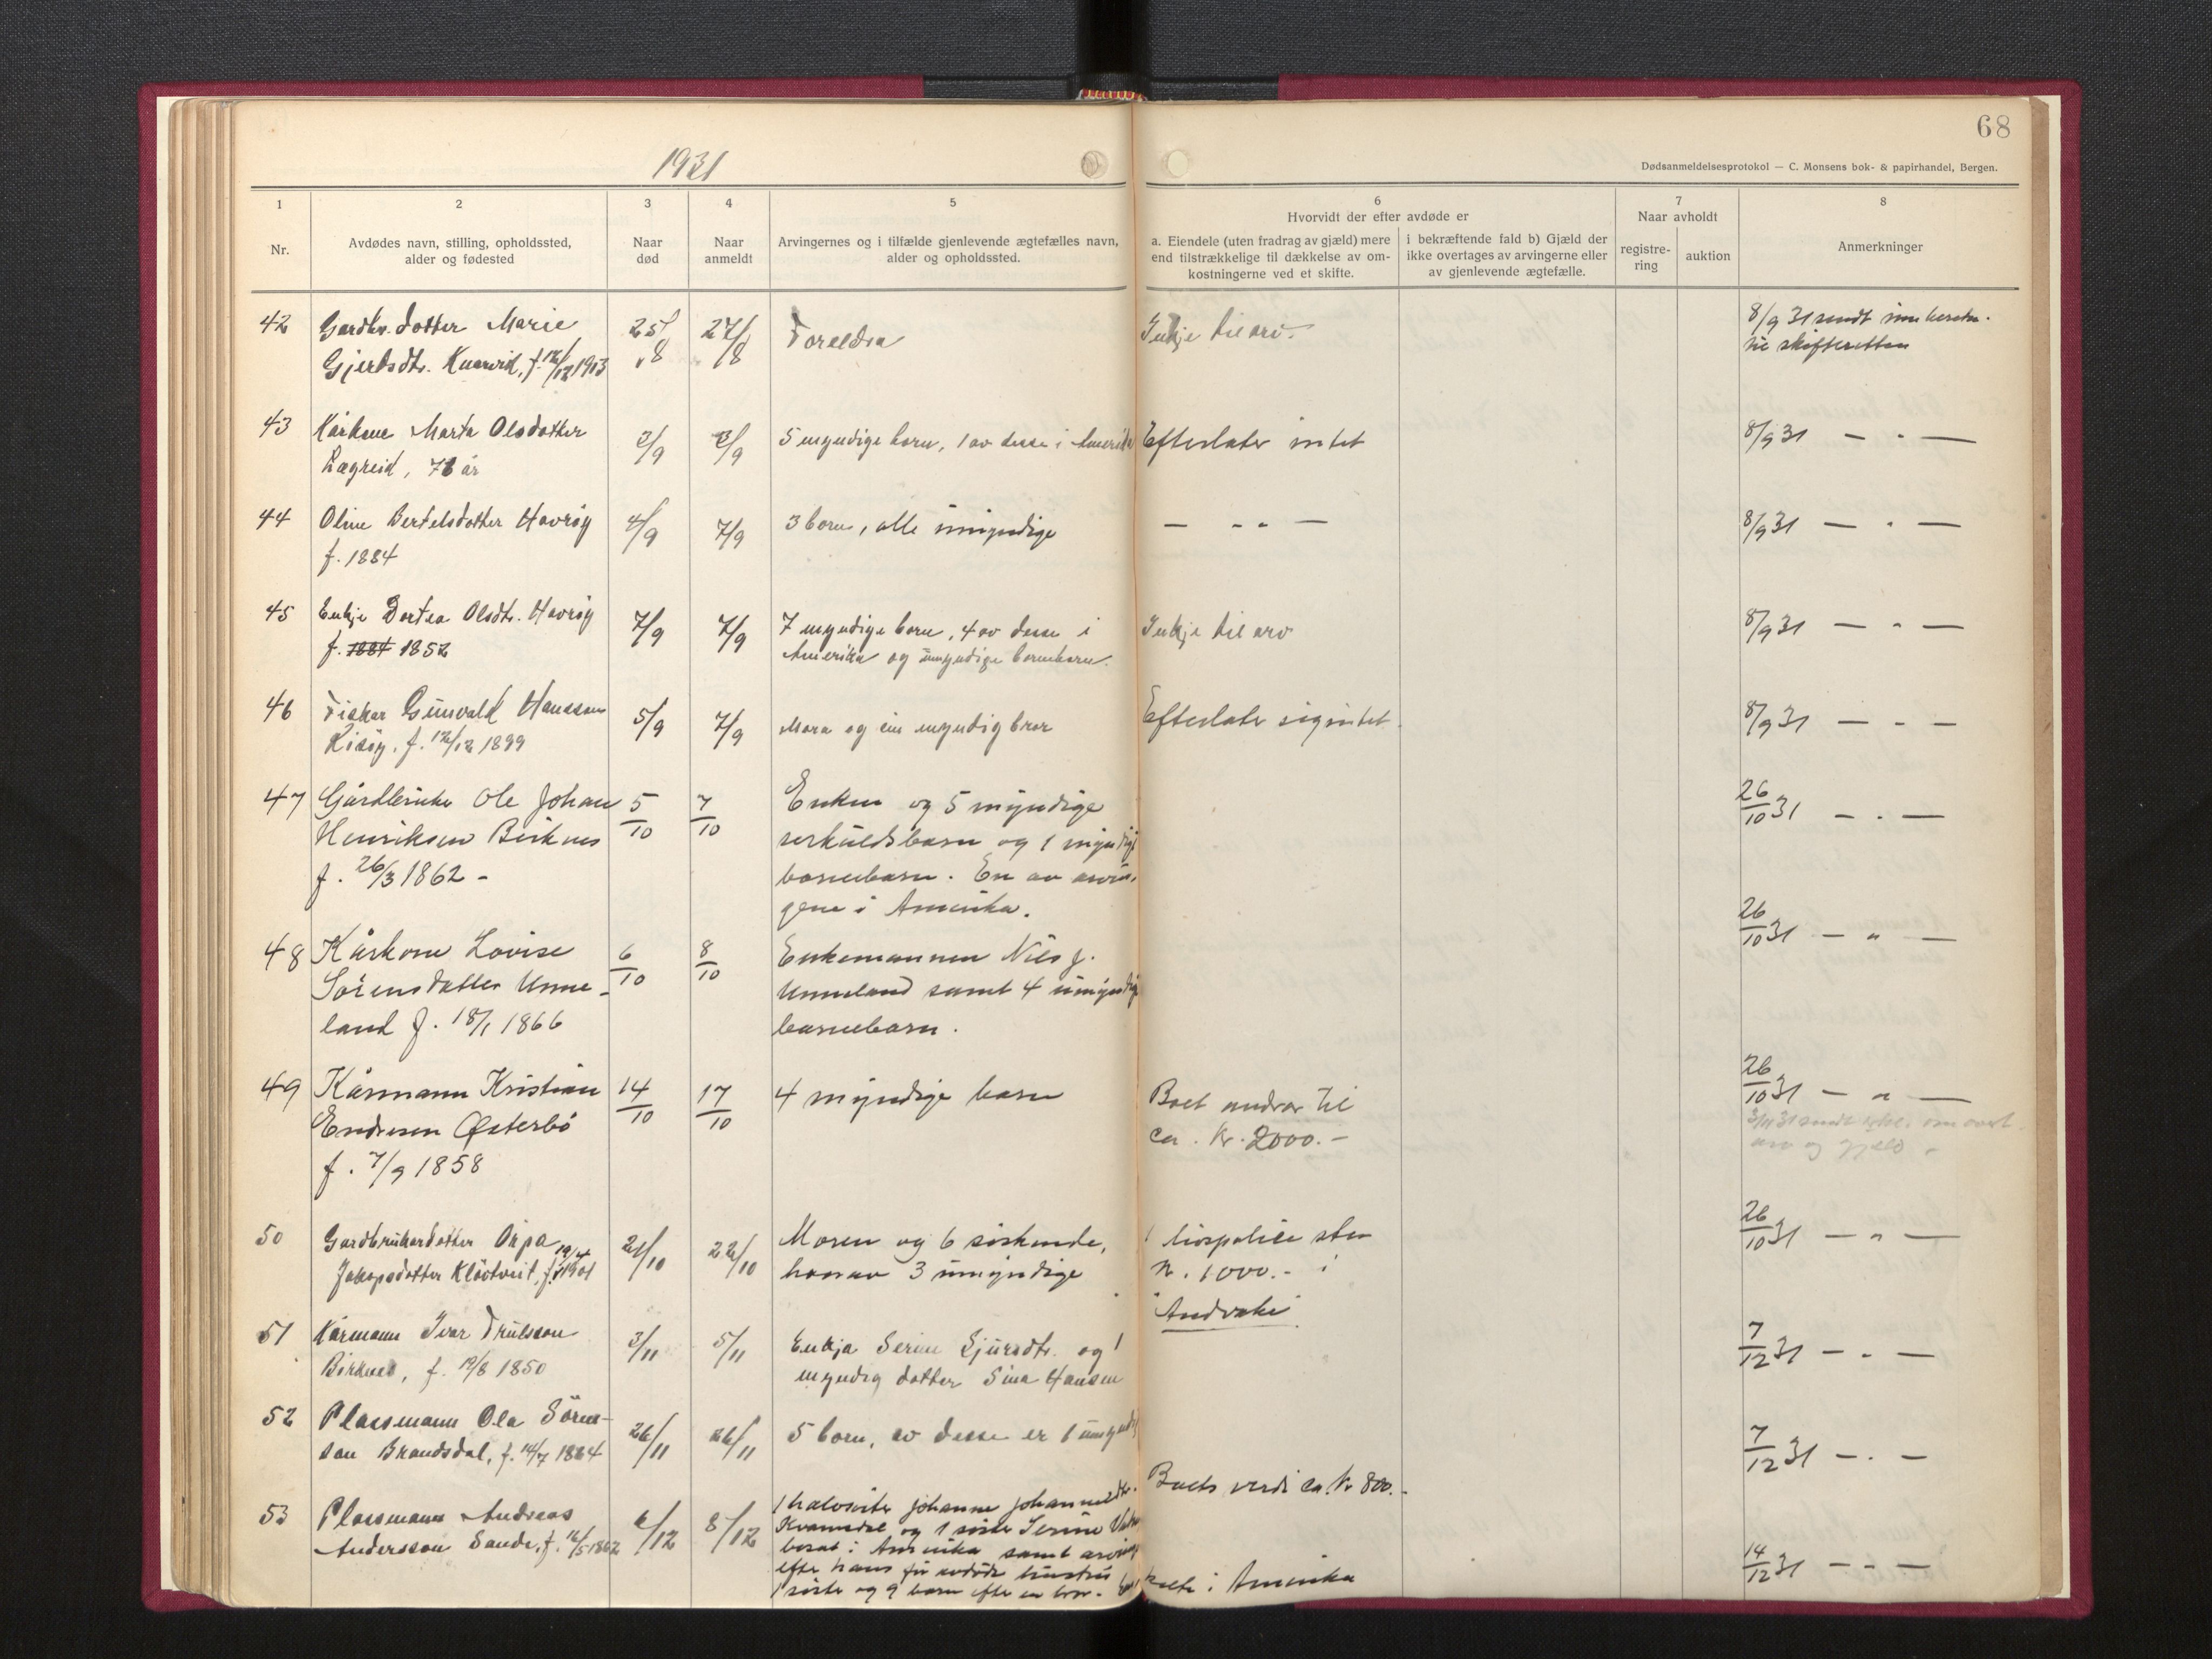 1931
68
Dødsanmeldelsesprotokol — C. Monsens bok- & papirhandel, Bergen.
1 2 3 4 5 6 7 8
Nr.
Avdødes navn, stilling, opholdssted,
alder og fødested
Naar
død
Naar
anmeldt
Arvingernes og i tilfælde gjenlevende ægtefælles navn,
alder og opholdssted.
Hvorvidt der efter avdøde er
a. Eiendele (uten fradrag av gjæld) mere
end tilstrækkelige til dækkelse av om-
kostningerne ved et skifte.
i bekræftende fald b) Gjæld der
ikke overtages av arvingerne eller
av gjenlevende ægtefælle.
Naar avholdt
registre-
ring
auktion
Anmerkninger
42 Gardbr. dotter Marie
Gjertsdtr. Kvarvid, f. 12/12 1913
25/8 27/8 Foreldra
Inkje til arv.
8/9 31 sendt
til skifteretten
43 Kårkone Marta Olsdotter
Lægreid, år
3/9 3/9 5 myndige born, 1 av desse i Amerika
Efterlater intet
8/9 31 — " —
44 Oline Bertelsdotter Havrøy
f. 1884
4/9 7/9 3 born, alle umyndige
— " —
8/9 31 — " —
45 Enkje Dortea Olsdtr. Havrøy
f. 1884 1852
7/9 7/9 7 myndige born, 4 av desse i
Amerika og umyndige borneborn.
Inkje til arv
8/9 31 — " —
46 Fisker Gunvald Hansson
Risøy, f. 12/12 1899
5/9 7/9 Mora og ein myndig bror
Efterlater sig intet.
8/9 31 — " —
47 Gårdbruker Ole Johan
Henriksen Birknes
f. 26/3 1862 -
5/10 7/10 Enken og 5 myndige
særkuldsbarn og 1 myndig
barnebarn. En av arvin-
gene i Amerika.
26/10 31 — " —
48 Kårkone Lovise
Sörensdatter Unne-
land f. 18/1 1866
6/10 8/10 Enkemannen Nils J.
Unneland samt 4 umyndige
barnebarn.
26/10 31 — " —
49 Kårmann Kristian
Endresen Østerbö
f. 7/9 1858
14/10 17/10 4 myndige barn
Boet andrar til
ca. kr. 2000.-
26/10 31 — " —
3/11 31 sendt om overt.
arv og gjeld -
50 Gardbrukardotter
Jakopsdotter Kløvtveit, f. 19/4 1901
21/10 22/10 Moren og 6 söskende,
hvorav 3 umyndige
1 livspolise stor
kr. 1000.- i
"Andvake"
26/10 31 — " —
51 Kårmann Ivar Trulsson
Birknes, f. 19/8 1850
3/11 5/11 Enkja Serine Sjursdtr. og 1
myndig dotter Sina Hansen
7/12 31 — " —
52 Plassmann Ola Sören-
son Brandsdal, f. 14/7 1864
26/11 26/11 5 born, av desse er 1 umyndig
7/12 31 — " —
53 Plassmann Andreas
Andersson Sande, f. 16/5 1862
6/12 8/12 1 halvsöster Johanne Johannesdtr.
Kvamsdal og 1 söster Serine
bosat i Amerika samt arvinger
efter hans før avdöde hustru
1 söster og 9 barn efter en bror.
Boets verdi ca. kr 800.-
i Amerika
14/12 31 — " —